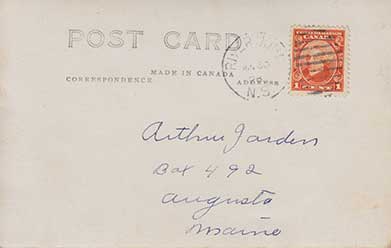 POST CARD
MADE IN CANADA
CORRESPONDENCE
ADDRESS
CANADA
1 CENT 1
N.S.
Arthur Jorden
Box 492
Augusta
Maine